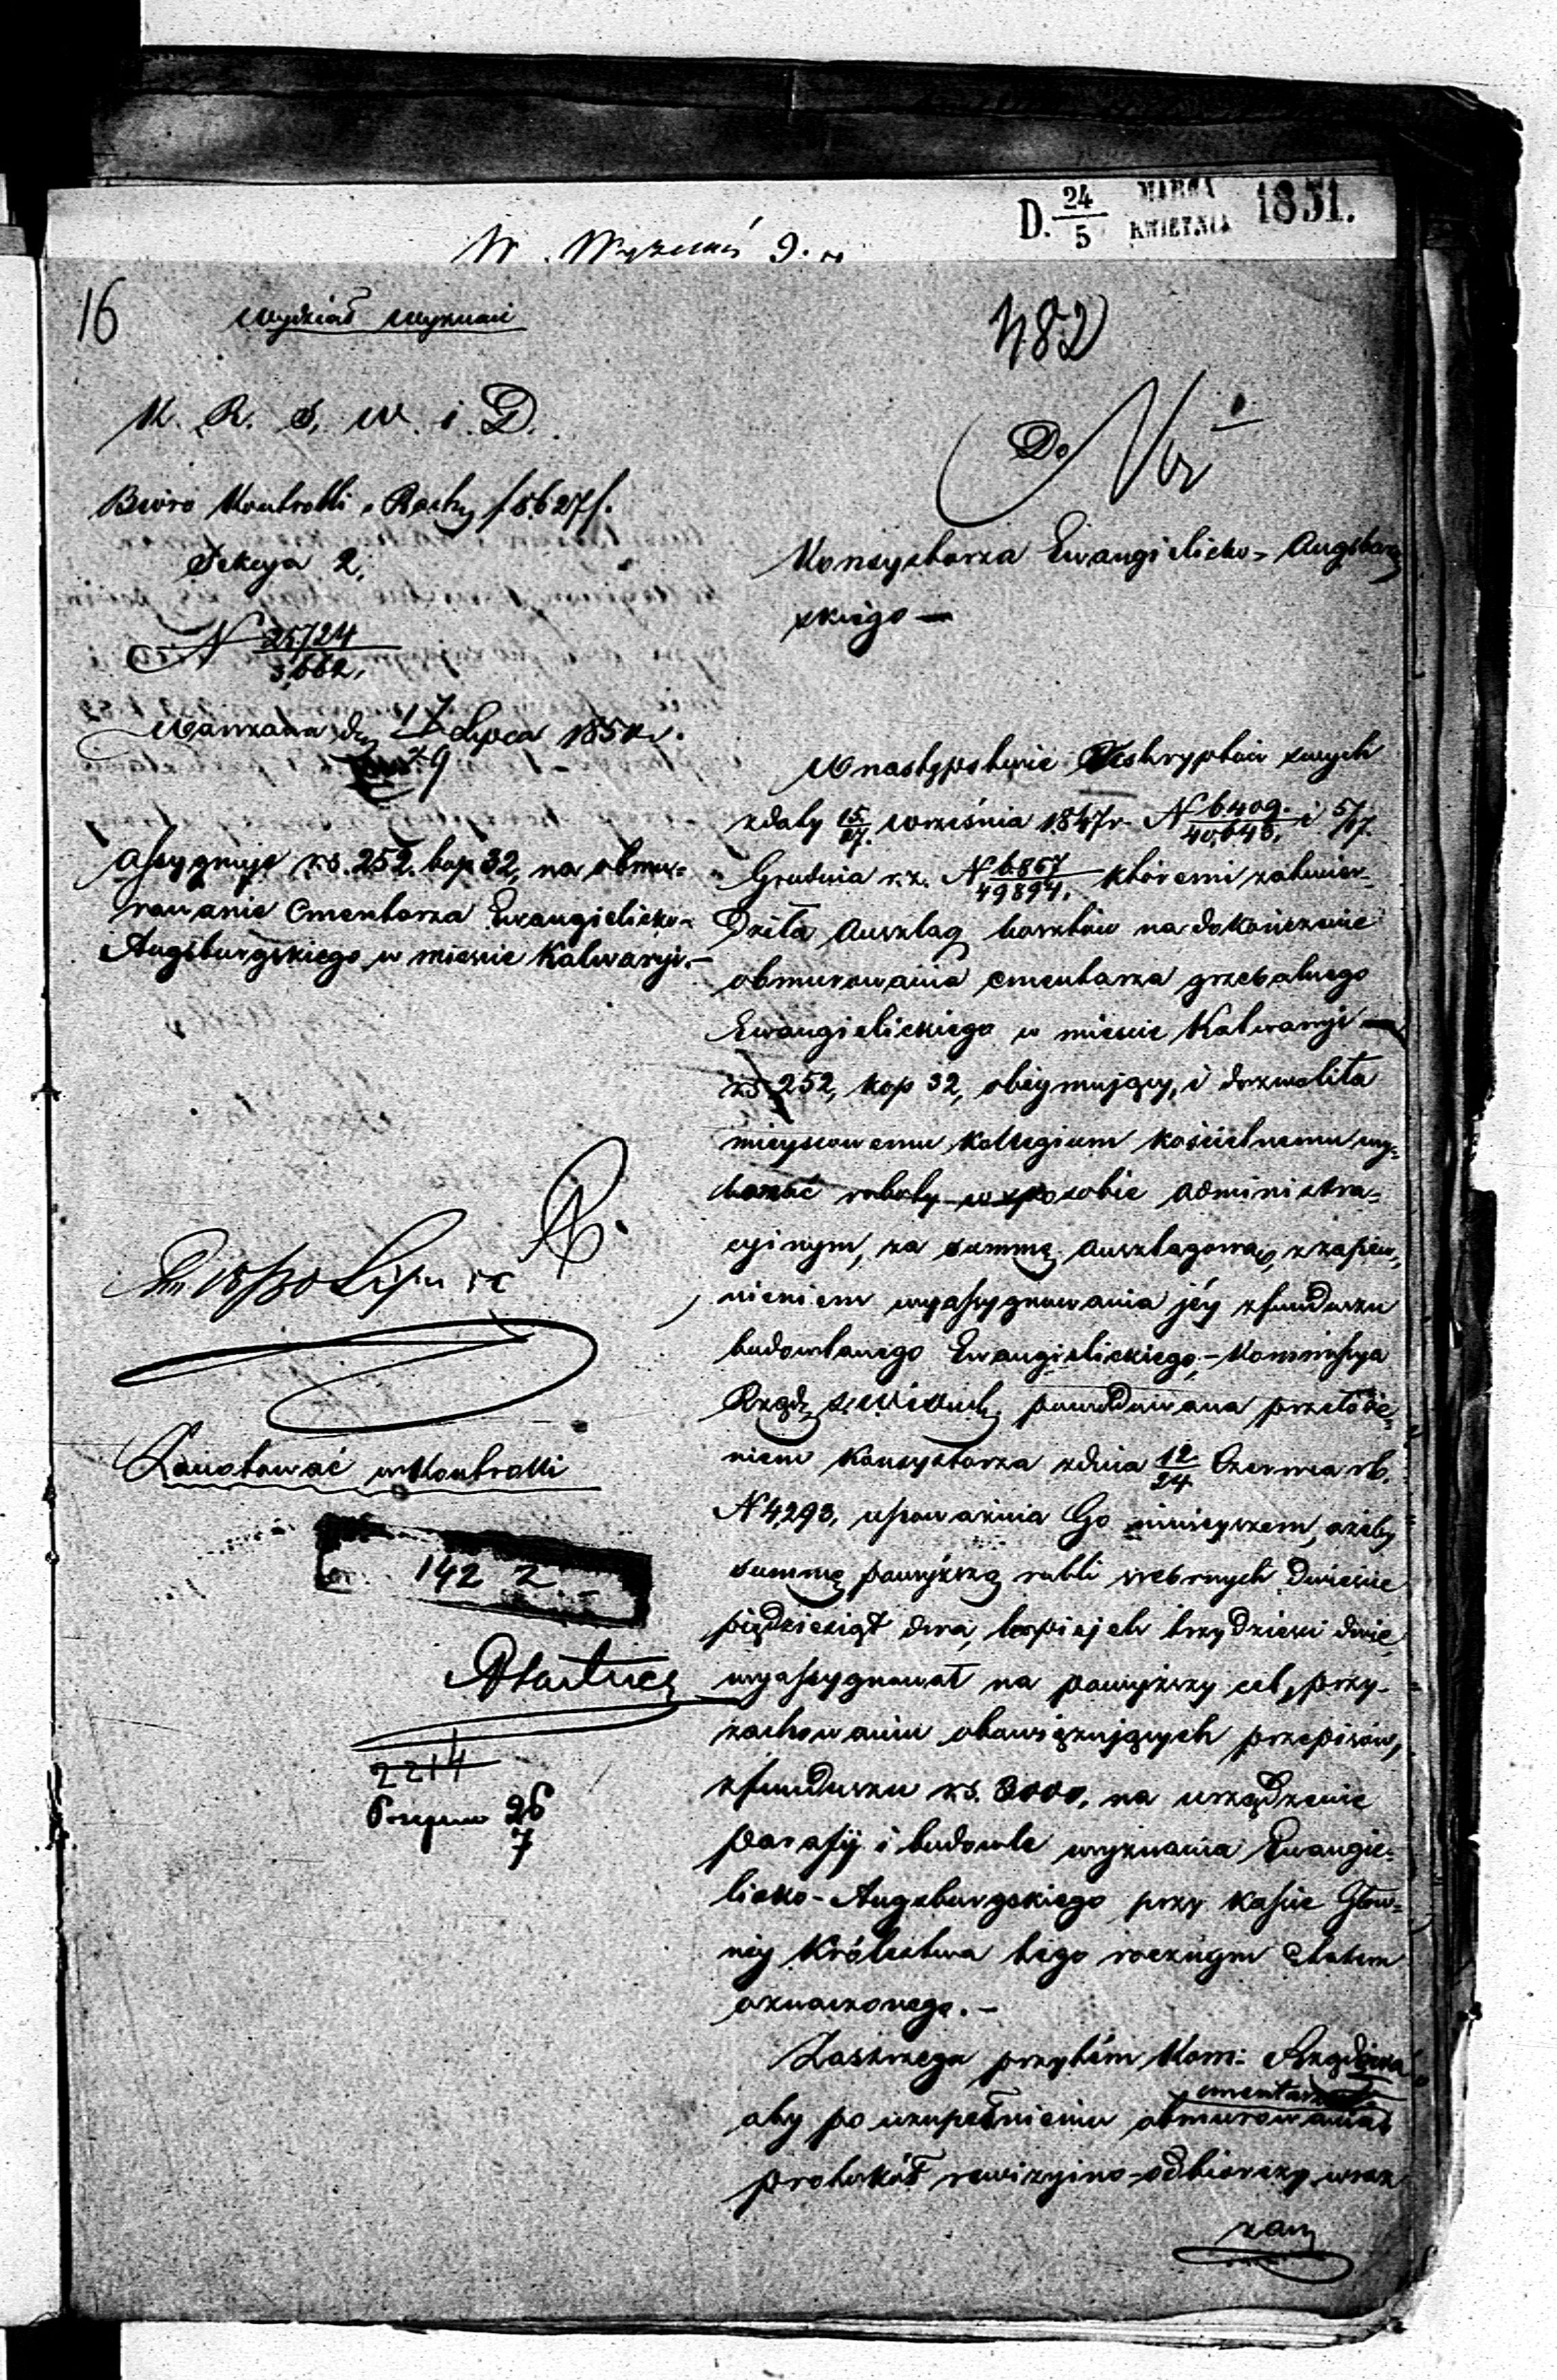 D. 24/5 MARCA KWIETNIA 1851.
16
Wydział Wyznań
482
K. R. S. W. i D.
Biuro Kontrolli i Rachy /5627/.
Sekcya 2.
N 25724/3,662.
Warszawa dn 17/29 Lipca 185
Assygnuje rs. 252. kop 32, na obmu-
rowanie Cmentarza Ewangielicko-
Augsburgskiego w mieście Kalwaryi.-
Zanotować w Kontrolli
142 2
2214
26
7
Do
Konsystorza Ewangielicko-Augsburg
skiego —
W następstwie Reskryptów swych
z daty 15/27. Września 1847 r. N 6409./40,643. i 5/17.
Grudnia r.z. N 6867/49894. któremi zatwier-
dziła Anszlag kosztów na dokończenie
obmurowania cmentarza grzebalnego
Ewangielickiego w mieście Kalwaryi —
rs. 252, kop 32, obeymujący, i dozwoliła
mieyscowemu Kollegium kościelnemu wy-
konać roboty w sposobie administra-
cyinym, za summę anszlagową, z zapew-
nieniem wyassygnowania jéy z funduszu
budowlanego Ewangielickiego,- Kommissya
Rządz. powodowana przełoże-
niem Konsystorza z dnia 12/24 Czerwca rb.
N 4,293, upoważnia Go ninieyszem, ażeby
summę powyższą rubli srebrnych dwieście
pięćdziesiąt dwa, kopiejek trzydzieści dwie
wyassygnował na powyższy cel, przy
zachowaniu obowiązujących przepisów,
z funduszu rs. 3000, na urządzenie
parafij i budowle wyznania Ewangie-
licko-Augsburgskiego przy Kassie Głów-
néy Królestwa tego rocznym etatem
oznaczonego.-
Zastrzega przytém Kom: Rządowa
aby po uzupełnieniu obmurowania cmentarza
protokół rewizyino-odbiorczy wraz
zaś